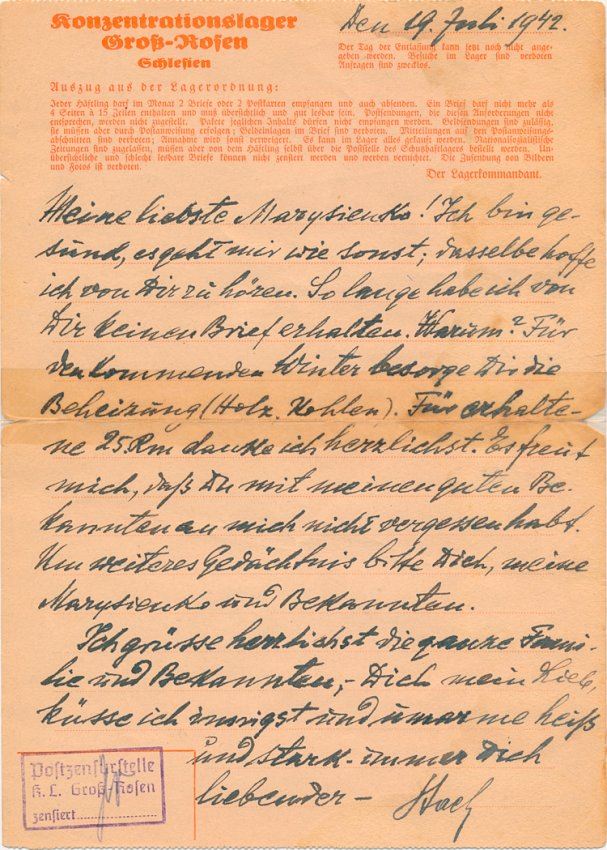 Konzentrationslager
Groß-Rosen
Schlesien
Den 19. Juli 1942.
Der Tag der Entlassung kann jetzt noch nicht ange-
geben werden. Besuche im Lager sind verboten
Anfragen sind zwecklos.
Auszug aus der Lagerordnung:
Jeder Häftling darf im Monat 2 Briefe oder 2 Postkarten empfangen und auch absenden. Ein Brief darf nicht mehr als
4 Seiten à 15 Zeilen enthalten und muß übersichtlich und gut lesbar sein. Postsendungen, die diesen Anforderungen nicht
entsprechen, werden nicht zugestellt. Pakete jeglichen Inhalts dürfen nicht empfangen werden. Geldsendungen sind zulässig,
sie müssen aber durch Postanweisung erfolgen; Geldeinlagen im Brief sind verboten. Mitteilungen auf den Postanweisungs-
abschnitten sind verboten; Annahme wird sonst verweigert. Es kann im Lager alles gekauft werden. Nationalsozialistische
Zeitungen sind zugelassen, müssen aber von dem Häftling selbst über die Poststelle des Schutzhaftlagers bestellt werden. Un-
übersichtliche und schlecht lesbare Briefe können nicht zensiert werden und werden vernichtet. Die Zusendung von Bildern
und Fotos ist verboten.
Der Lagerkommandant.
Meine liebste Marysienko! Ich bin ge-
sund, es geht mir wie sonst; dasselbe hoffe
ich von Dir zu hören. So lange habe ich von
Dir keinen Brief erhalten. Warum? Für
den kommenden Winter besorge Dir die
Beheizung (Holz, Kohlen). Für erhalte-
ne 25 Rm danke ich herzlichst. Es freut
mich, daß Du mit meinen guten Be-
kannten an mich nicht vergessen habt.
Um weiteres Gedächtnis bitte Dich, meine
Marysienko und Bekannten.
Ich grüsse herzlichst die ganze Fami-
lie und Bekannten, - Dich mein Lieb,
küsse ich innigst und umarme heiß
und stark - immer Dich
liebender - Stach
Postzensurstelle
K. L. Groß-Rosen
zensiert